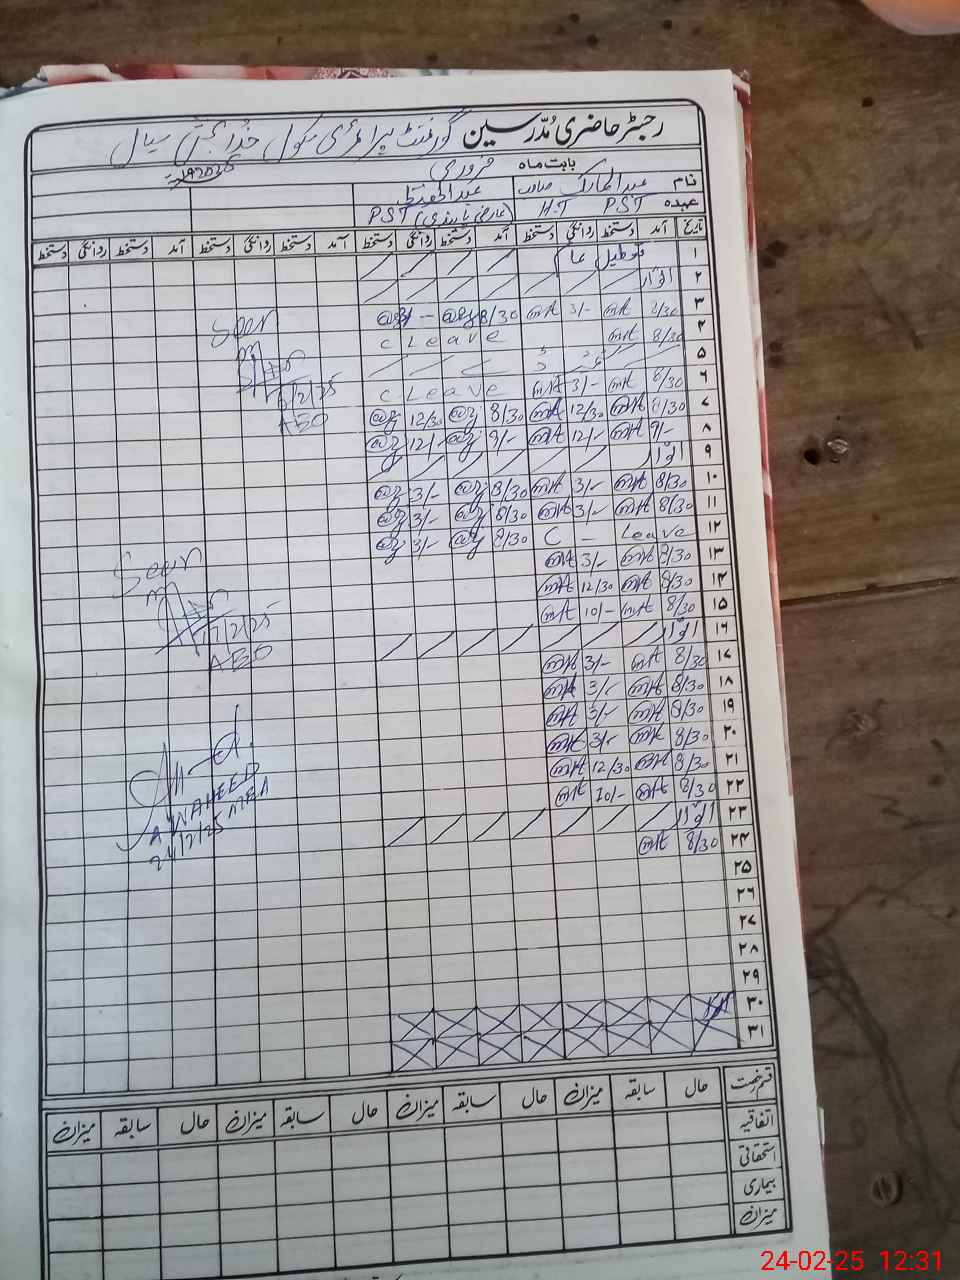 رجسٹر حاضری مدرسین گورنمنٹ پرائمری سکول خدا بخش سیال
بابت ماہ فروری 2025
نام عبدالمبارک صاحب عبدالحفیظ
عہدہ PST H.T PST (عارضی پابندی)
تاریخ آمد دستخط روانگی دستخط آمد دستخط روانگی دستخط آمد دستخط روانگی دستخط آمد دستخط روانگی دستخط
۱ تعطیل عام
۲ اتوار
۳ 8/30 3/- 8/30 3/-
۴ 8/30 C Leave
۵
۶ 8/30 3/- C Leave
۷ 8/30 12/30 8/30 12/30
۸ 9/- 12/- 9/- 12/-
۹ اتوار
۱۰ 8/30 3/- 8/30 3/-
۱۱ 8/30 3/- 8/30 3/-
۱۲ C - Leave 8/30 3/-
۱۳ 8/30 3/-
۱۴ 8/30 12/30
۱۵ 8/30 10/-
۱۶ اتوار
۱۷ 8/30 3/-
۱۸ 8/30 3/-
۱۹ 8/30 3/-
۲۰ 8/30 3/-
۲۱ 8/30 12/30
۲۲ 8/30 10/-
۲۳ اتوار
۲۴ 8/30
۲۵
۲۶
۲۷
۲۸
۲۹
۳۰
۳۱
Seen
6/2/25
AEO
Seen
17/2/25
AEO
A WAHEED
24/2/25 MEA
قسم رخصت حال سابقہ میزان حال سابقہ میزان حال سابقہ میزان حال سابقہ میزان
اتفاقیہ
استحقاقی
بیماری
میزان
24-02-25 12:31